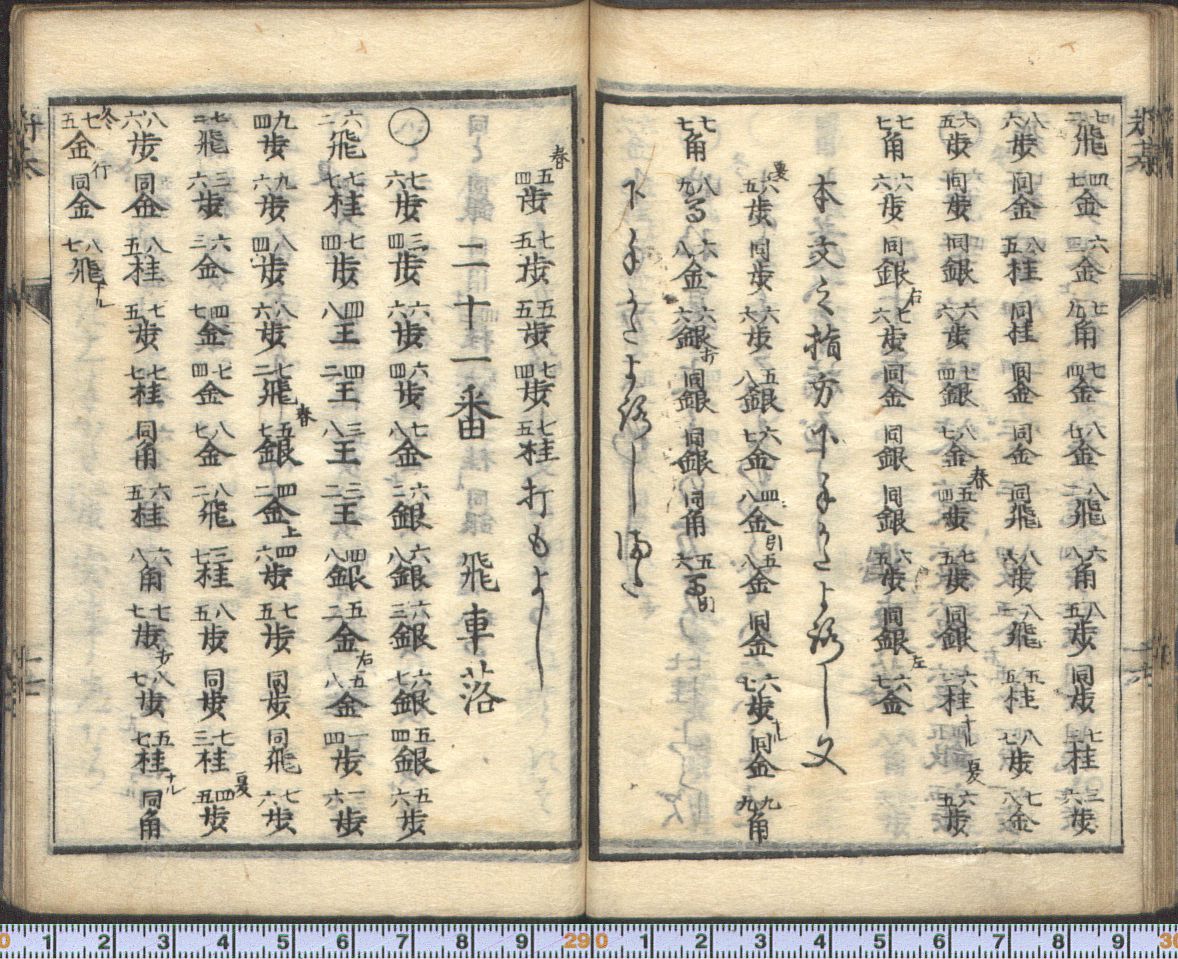 七二飛 四七金 六三金 七九角 七四金 八七金 八二飛 六八角 八五歩 同歩 七七桂 三六歩
八六歩 同金 八五桂 同桂 同金 同金 同飛 八六歩 八二飛 五五桂 八七歩 七八金
六五歩 同歩 同銀 六六歩 七四銀 八七金 春五四歩 七五歩 同銀 六七桂ナル 夏六五歩
七七角 六六歩 同銀右 七六歩 同金 同銀 同銀 六五歩 同銀左 六七金
本文之指方下手かたよろし又
夏六五歩 同歩 六六歩 五八銀 六七金 四八金引 五八金 同金 六七歩ナル 同金 九九角
七七角 八九馬 六八金 六六銀打 同銀 同銀 同角
下手かたよろし
春五四歩 七五歩 五五歩 七四歩 七五桂打もよし
二十一番 飛車落
○ 七六歩 三四歩 六六歩 六四歩 七八金 六二銀 六八銀 六三銀 六七銀 五四銀 五六歩
六二飛 七七桂 七四歩 四八王 四二王 三八王 三二王 四八銀 五二金右 五八金 一四歩 一六歩
九四歩 九六歩 八四歩 八六歩 七二飛 春五七銀 四二金上 四六歩 七五歩 同歩 同飛 七六歩
七二飛 三六歩 六三金 四七金 七四金 八七金 八二飛 三七桂 八五歩 同歩 七三桂 夏四五歩
八六歩 同金 八五桂 七五歩 七七桂 同角 六五桂 六八角 七七歩打 八七歩 五七桂ナル 同角
冬七五金行 同金 八七飛ナル